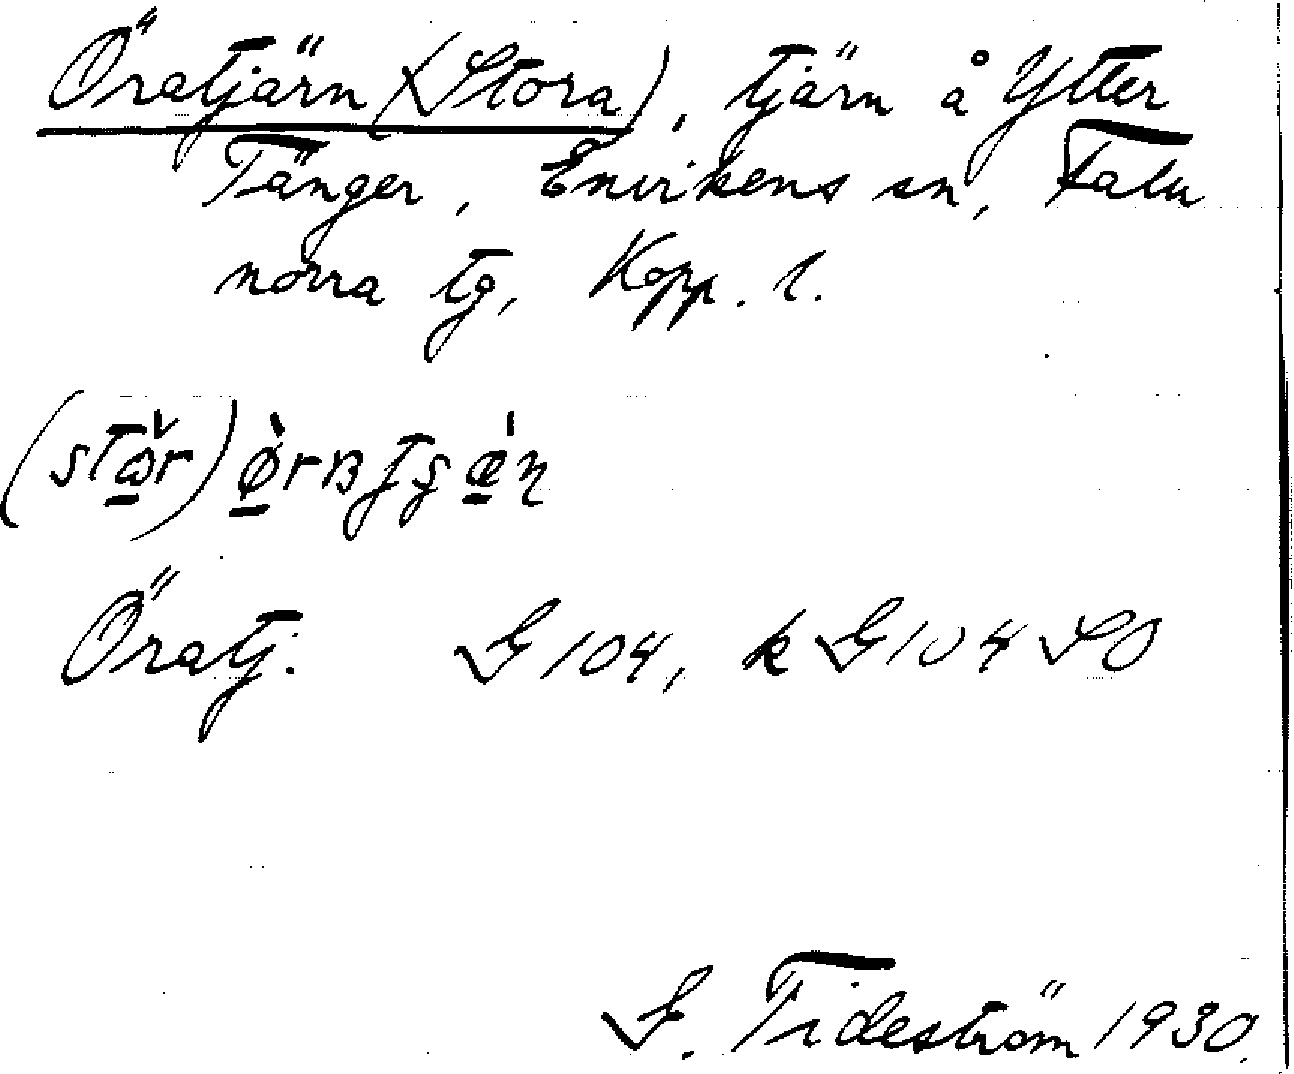 Öratjärn (Stora), tjärn å Ytter
Tänger, Envikens sn, Falu
norra tg, Kopp. l.
(stω̆r) ø̀rɐtʂǽn
Öratj. G 104, k G 104 SO
G. Tideström 1930.